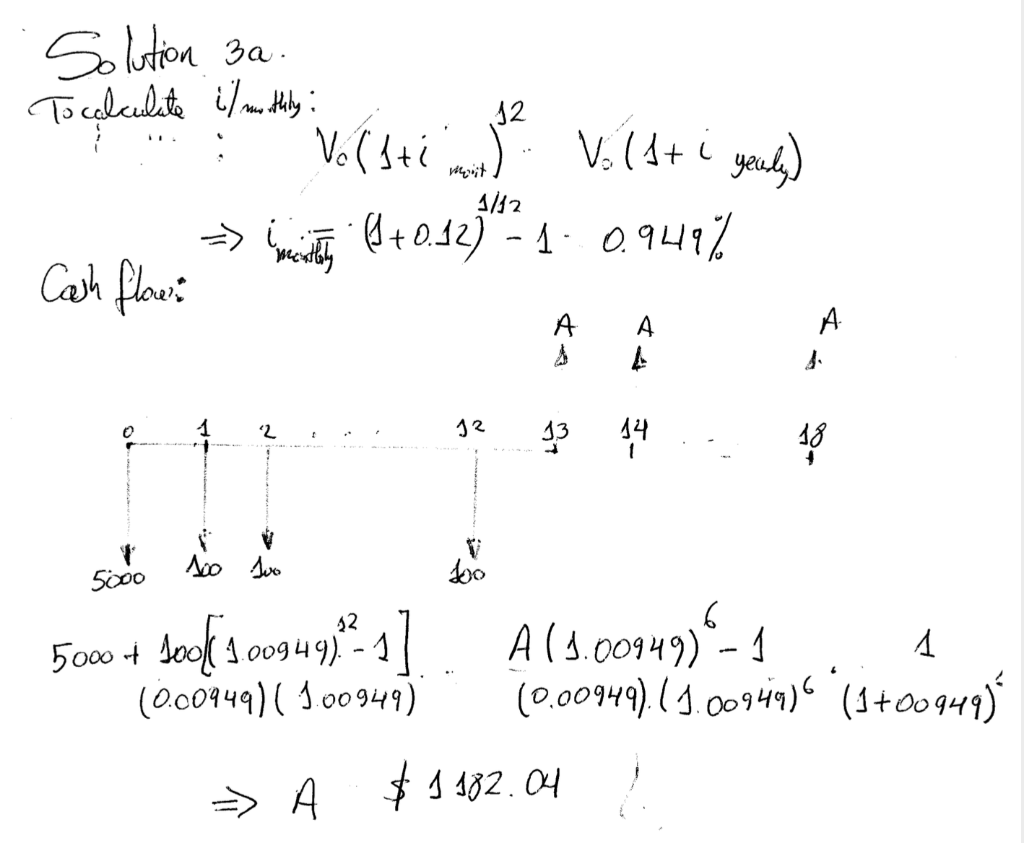 Solution 3a.
To calculate i/monthly:
V₀(1+i mont)¹² V₀(1+i yearly)
=> i monthly = (1+0.12)^1/12 - 1 0.949%
Cash flow:
A A A
0 1 2 . . . 12 13 14 . . - 18
5000 100 100 100
5000 + 100[(1.00949)¹² - 1] A(1.00949)⁶ - 1 1
(0.00949)(1.00949) (0.00949).(1.00949)⁶ . (1+00949)
=> A $ 1182.04